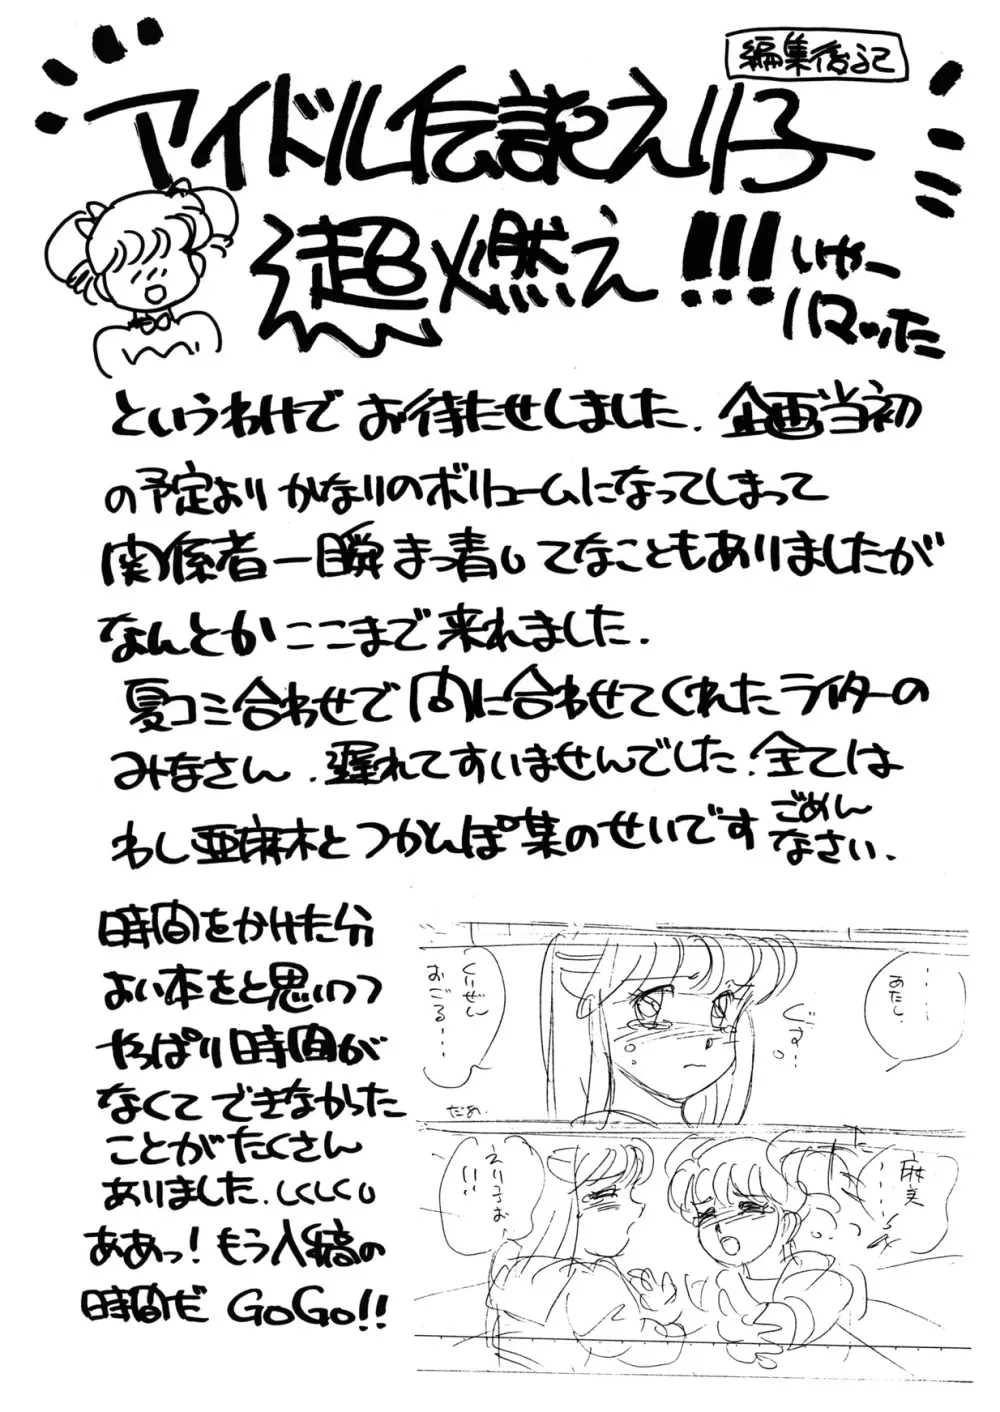 編集後記
アイドル伝説えり子
超燃え!!! いやー
ハマッた
というわけで お待たせしました. 企画当初
の予定より かなりのボリュームになってしまって
関係者一瞬まっ青してなこともありましたが
なんとか ここまで 来れました.
夏コミ合わせで 間に合わせてくれた ライターの
みなさん. 遅れてすいませんでした. 全ては
わし亜麻木と つかとんぽ葉のせいです ごめん
なさい.
時間をかけた分
よい本をと思いつつ
やっぱり時間が
なくて できなかった
ことがたくさん
ありました. しくしくし
ああっ! もう入稿の
時間だ GoGo!!
……
あたし
ぐす…
だめ.
麻美
……
えり子ぉ
!!